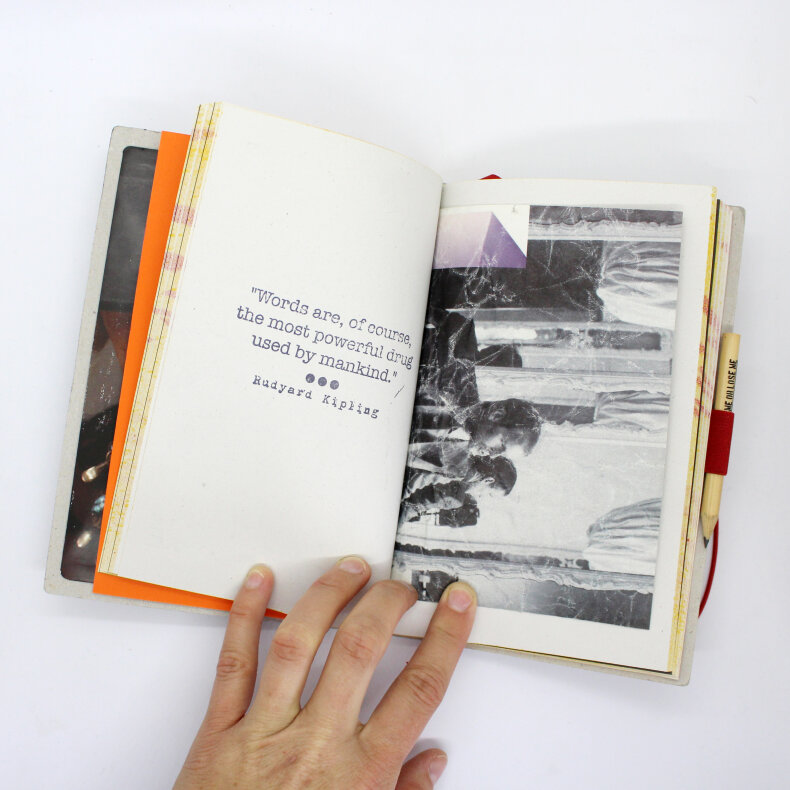 "Words are, of course,
the most powerful drug
used by mankind."
Rudyard Kipling
ME OR LOSE ME